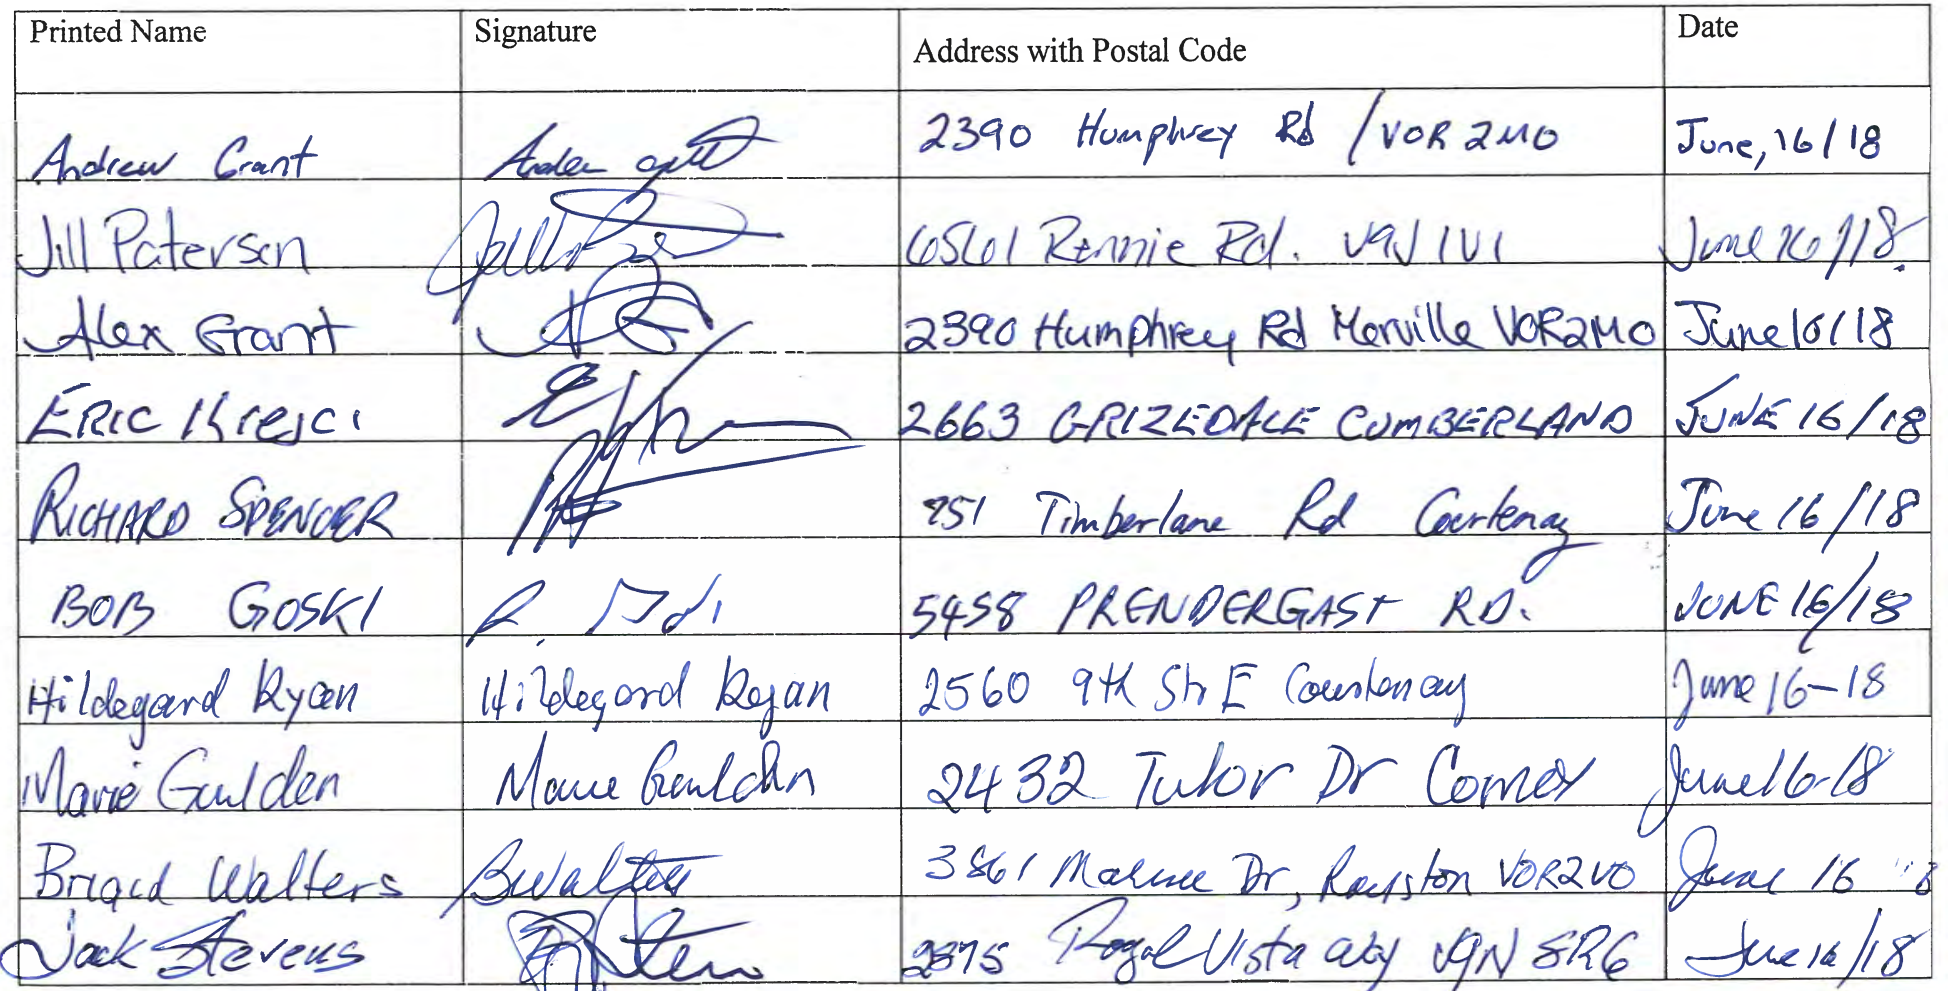 Printed Name Signature Address with Postal Code Date
Andrew Grant 2390 Humphrey Rd / V0R 2M0 June, 16/18
Jill Paterson 6561 Rennie Rd. V9J 1V1 June 16/18.
Alex Grant 2390 Humphrey Rd Merville V0R2M0 June 16/18
ERIC Krejci 2663 GRIZEDALE CUMBERLAND JUNE 16/18
RICHARD SPENCER 951 Timberlane Rd Courtenay June 16/18
BOB GOSKI 5458 PRENDERGAST RD. JUNE 16/18
Hildegard Ryan Hildegard Ryan 2560 9th Str E Courtenay June 16-18
Marie Gulden Marie Gulden 2432 Tutor Dr Comox June 16-18
Brigid Walters BWalters 3861 Dr, Royston V0R2V0 June 16
Jack Stevens 2375 Royal Vista Way V9N 8R6 June 16/18